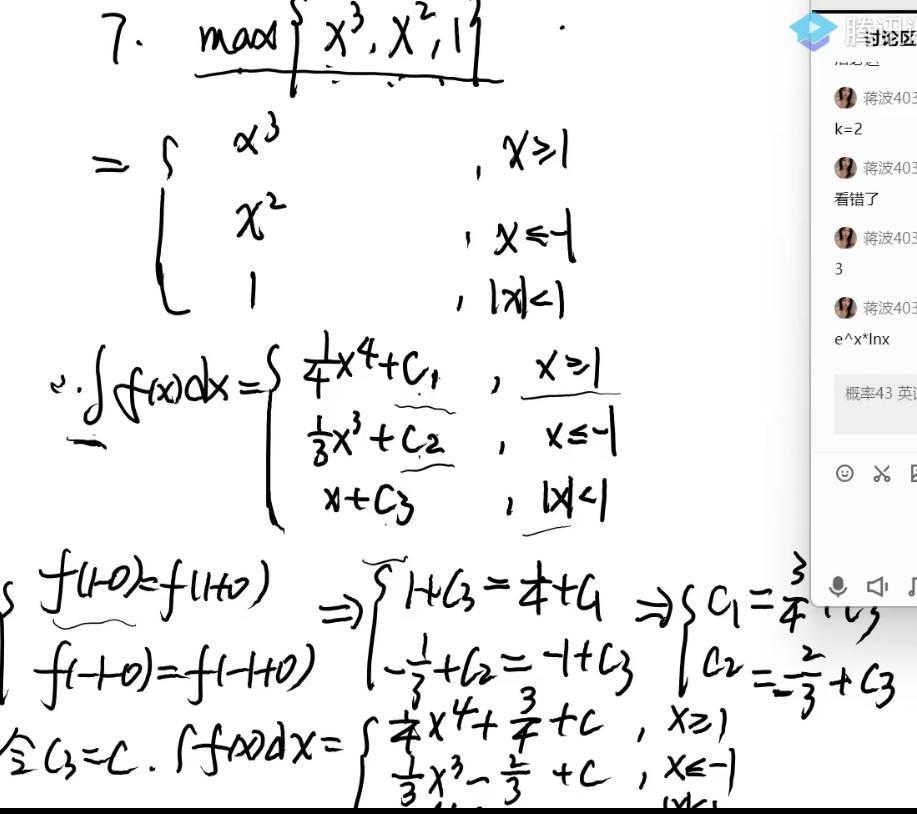 7. max{x³, x², 1}
= { x³ , x≥1
x² , x≤-1
1 , |x|<1
∴ ∫f(x)dx = { 1/4 x⁴+C₁ , x≥1
1/3 x³+C₂ , x≤-1
x+C₃ , |x|<1
{ f(1-0)=f(1+0) ⇒ { 1+C₃=1/4+C₁ ⇒ { C₁=3/4+C₃
f(-1-0)=f(-1+0) -1/3+C₂=-1+C₃ C₂=-2/3+C₃
令C₃=C. ∫f(x)dx= { 1/4 x⁴+3/4+C , x≥1
1/3 x³-2/3+C , x≤-1
腾讯
讨论区
蒋波403
k=2
蒋波403
看错了
蒋波403
3
蒋波403
e^x*lnx
概率43 英